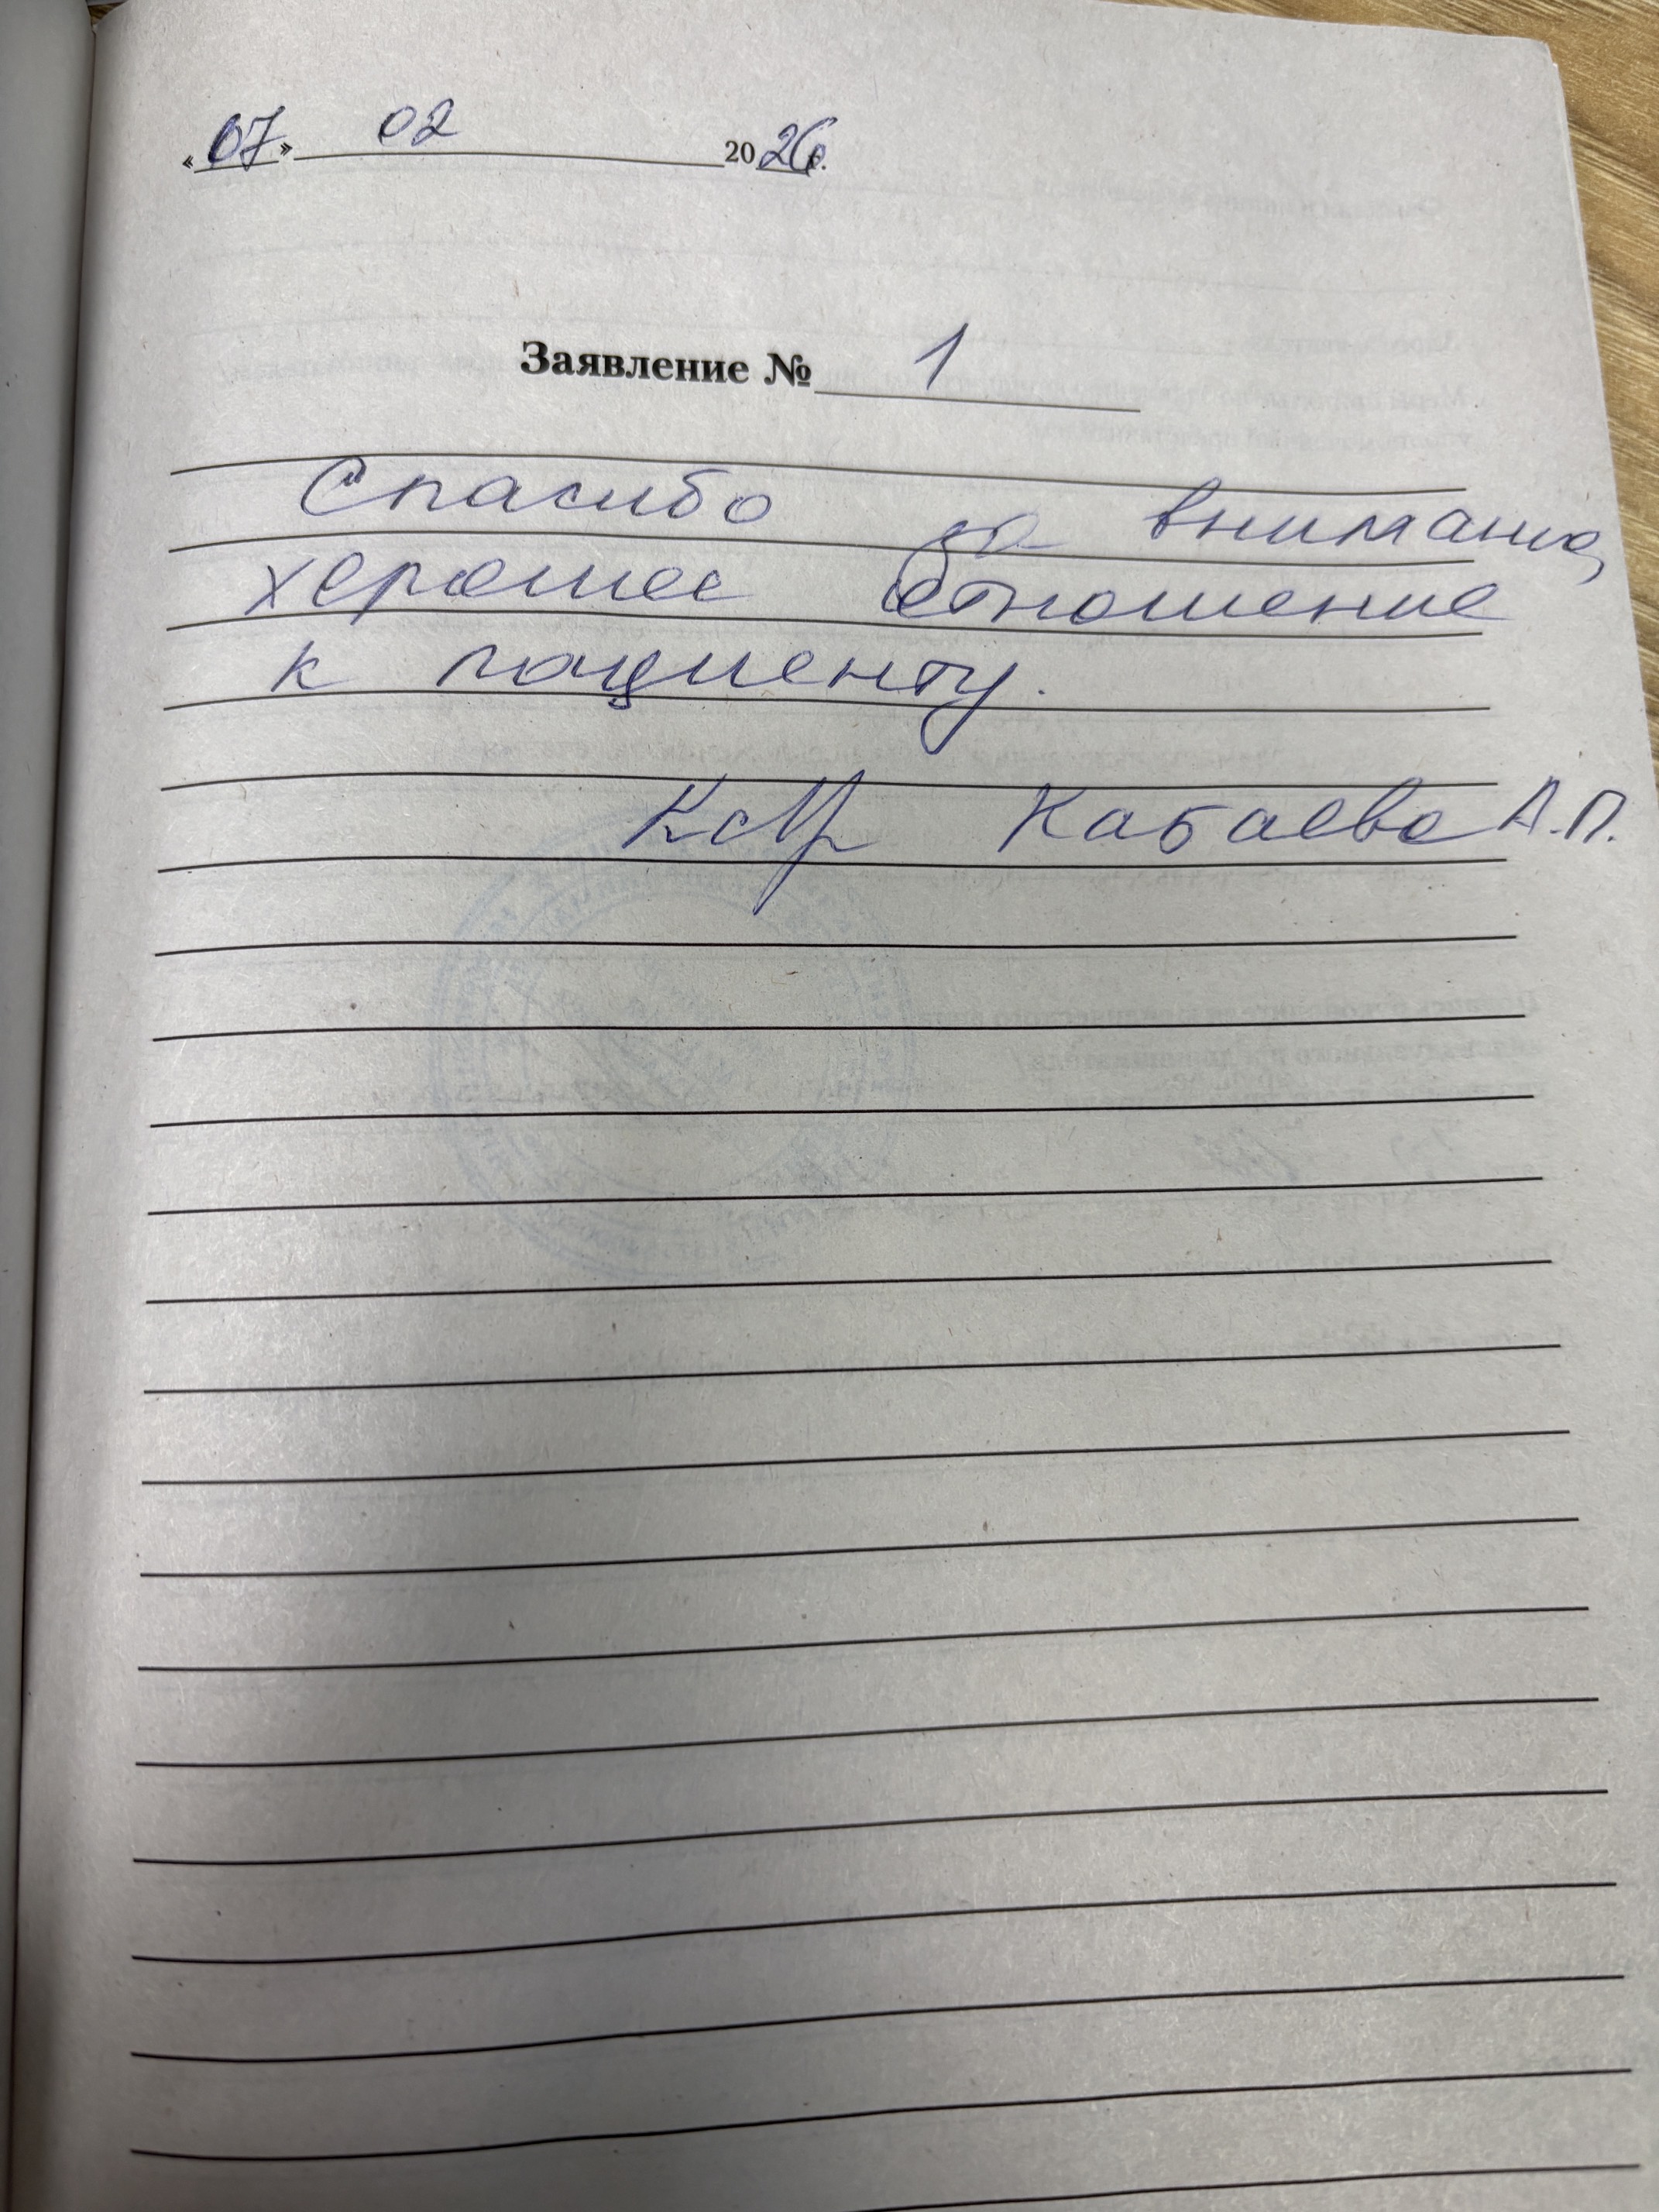 «07» 02 2026г.
Заявление № 1
Спасибо за внимание,
хорошее отношение
к пациенту.
Кабаева А.П.